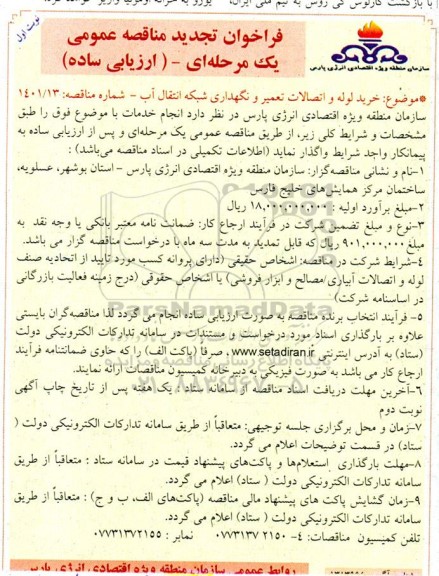 نوبت اول
فراخوان تجدید مناقصه عمومی
یک مرحله‌ای - ( ارزیابی ساده)
سازمان منطقه ویژه اقتصادی انرژی پارس
*موضوع: خرید لوله و اتصالات تعمیر و نگهداری شبکه انتقال آب - شماره مناقصه: ۱۴۰۱/۱۳
سازمان منطقه ویژه اقتصادی انرژی پارس در نظر دارد انجام خدمات با موضوع فوق را طبق
مشخصات و شرایط کلی زیر، از طریق مناقصه عمومی یک مرحله‌ای و پس از ارزیابی ساده به
پیمانکار واجد شرایط واگذار نماید (اطلاعات تکمیلی در اسناد مناقصه می‌باشد) :
۱-نام و نشانی مناقصه‌گزار: سازمان منطقه ویژه اقتصادی انرژی پارس -استان بوشهر، عسلویه،
ساختمان مرکز همایش‌های خلیج فارس
۲-مبلغ برآورد اولیه : ۱۸,۰۰۰,۰۰۰,۰۰۰ ریال
۳-نوع و مبلغ تضمین شرکت در فرآیند ارجاع کار: ضمانت نامه معتبر بانکی یا وجه نقد به
مبلغ ۹۰۱,۰۰۰,۰۰۰ ریال که قابل تمدید به مدت سه ماه با درخواست مناقصه گزار می باشد.
۴-شرایط شرکت در مناقصه: اشخاص حقیقی (دارای پروانه کسب مورد تایید از اتحادیه صنف
لوله و اتصالات آبیاری/مصالح و ابزار فروشی) یا اشخاص حقوقی (درج زمینه فعالیت بازرگانی
در اساسنامه شرکت)
۵- فرآیند انتخاب برنده مناقصه به صورت ارزیابی ساده انجام می گردد لذا مناقصه‌گران بایستی
علاوه بر بارگذاری اسناد مورد درخواست و مستندات در سامانه تدارکات الکترونیکی دولت
(ستاد) به آدرس اینترنتی www.setadiran.ir، صرفا (پاکت الف) را که حاوی ضمانتنامه فرآیند
ارجاع کار می باشد به صورت فیزیکی به دبیرخانه کمیسیون مناقصات ارائه نمایند.
۶-آخرین مهلت دریافت اسناد مناقصه از سامانه ستاد : یک هفته پس از تاریخ چاپ آگهی
نوبت دوم
۷-زمان و محل برگزاری جلسه توجیهی: متعاقباً از طریق سامانه تدارکات الکترونیکی دولت (
ستاد) در قسمت توضیحات اعلام می گردد.
۸-مهلت بارگذاری استعلام‌ها و پاکت‌های پیشنهاد قیمت در سامانه ستاد : متعاقباً از طریق
سامانه تدارکات الکترونیکی دولت ( ستاد) اعلام می گردد.
۹-زمان گشایش پاکت های پیشنهاد مالی مناقصه (پاکت‌های الف، ب و ج) : متعاقباً از طریق
سامانه تدارکات الکترونیکی دولت ( ستاد) اعلام می گردد.
تلفن کمیسیون مناقصات: ۴- ۰۷۷۳۱۳۷ ۲۱۵۰ نمابر : ۰۷۷۳۱۳۷۲۱۵۵
روابط عمومی سازمان منطقه ویژه اقتصادی انرژی پارس